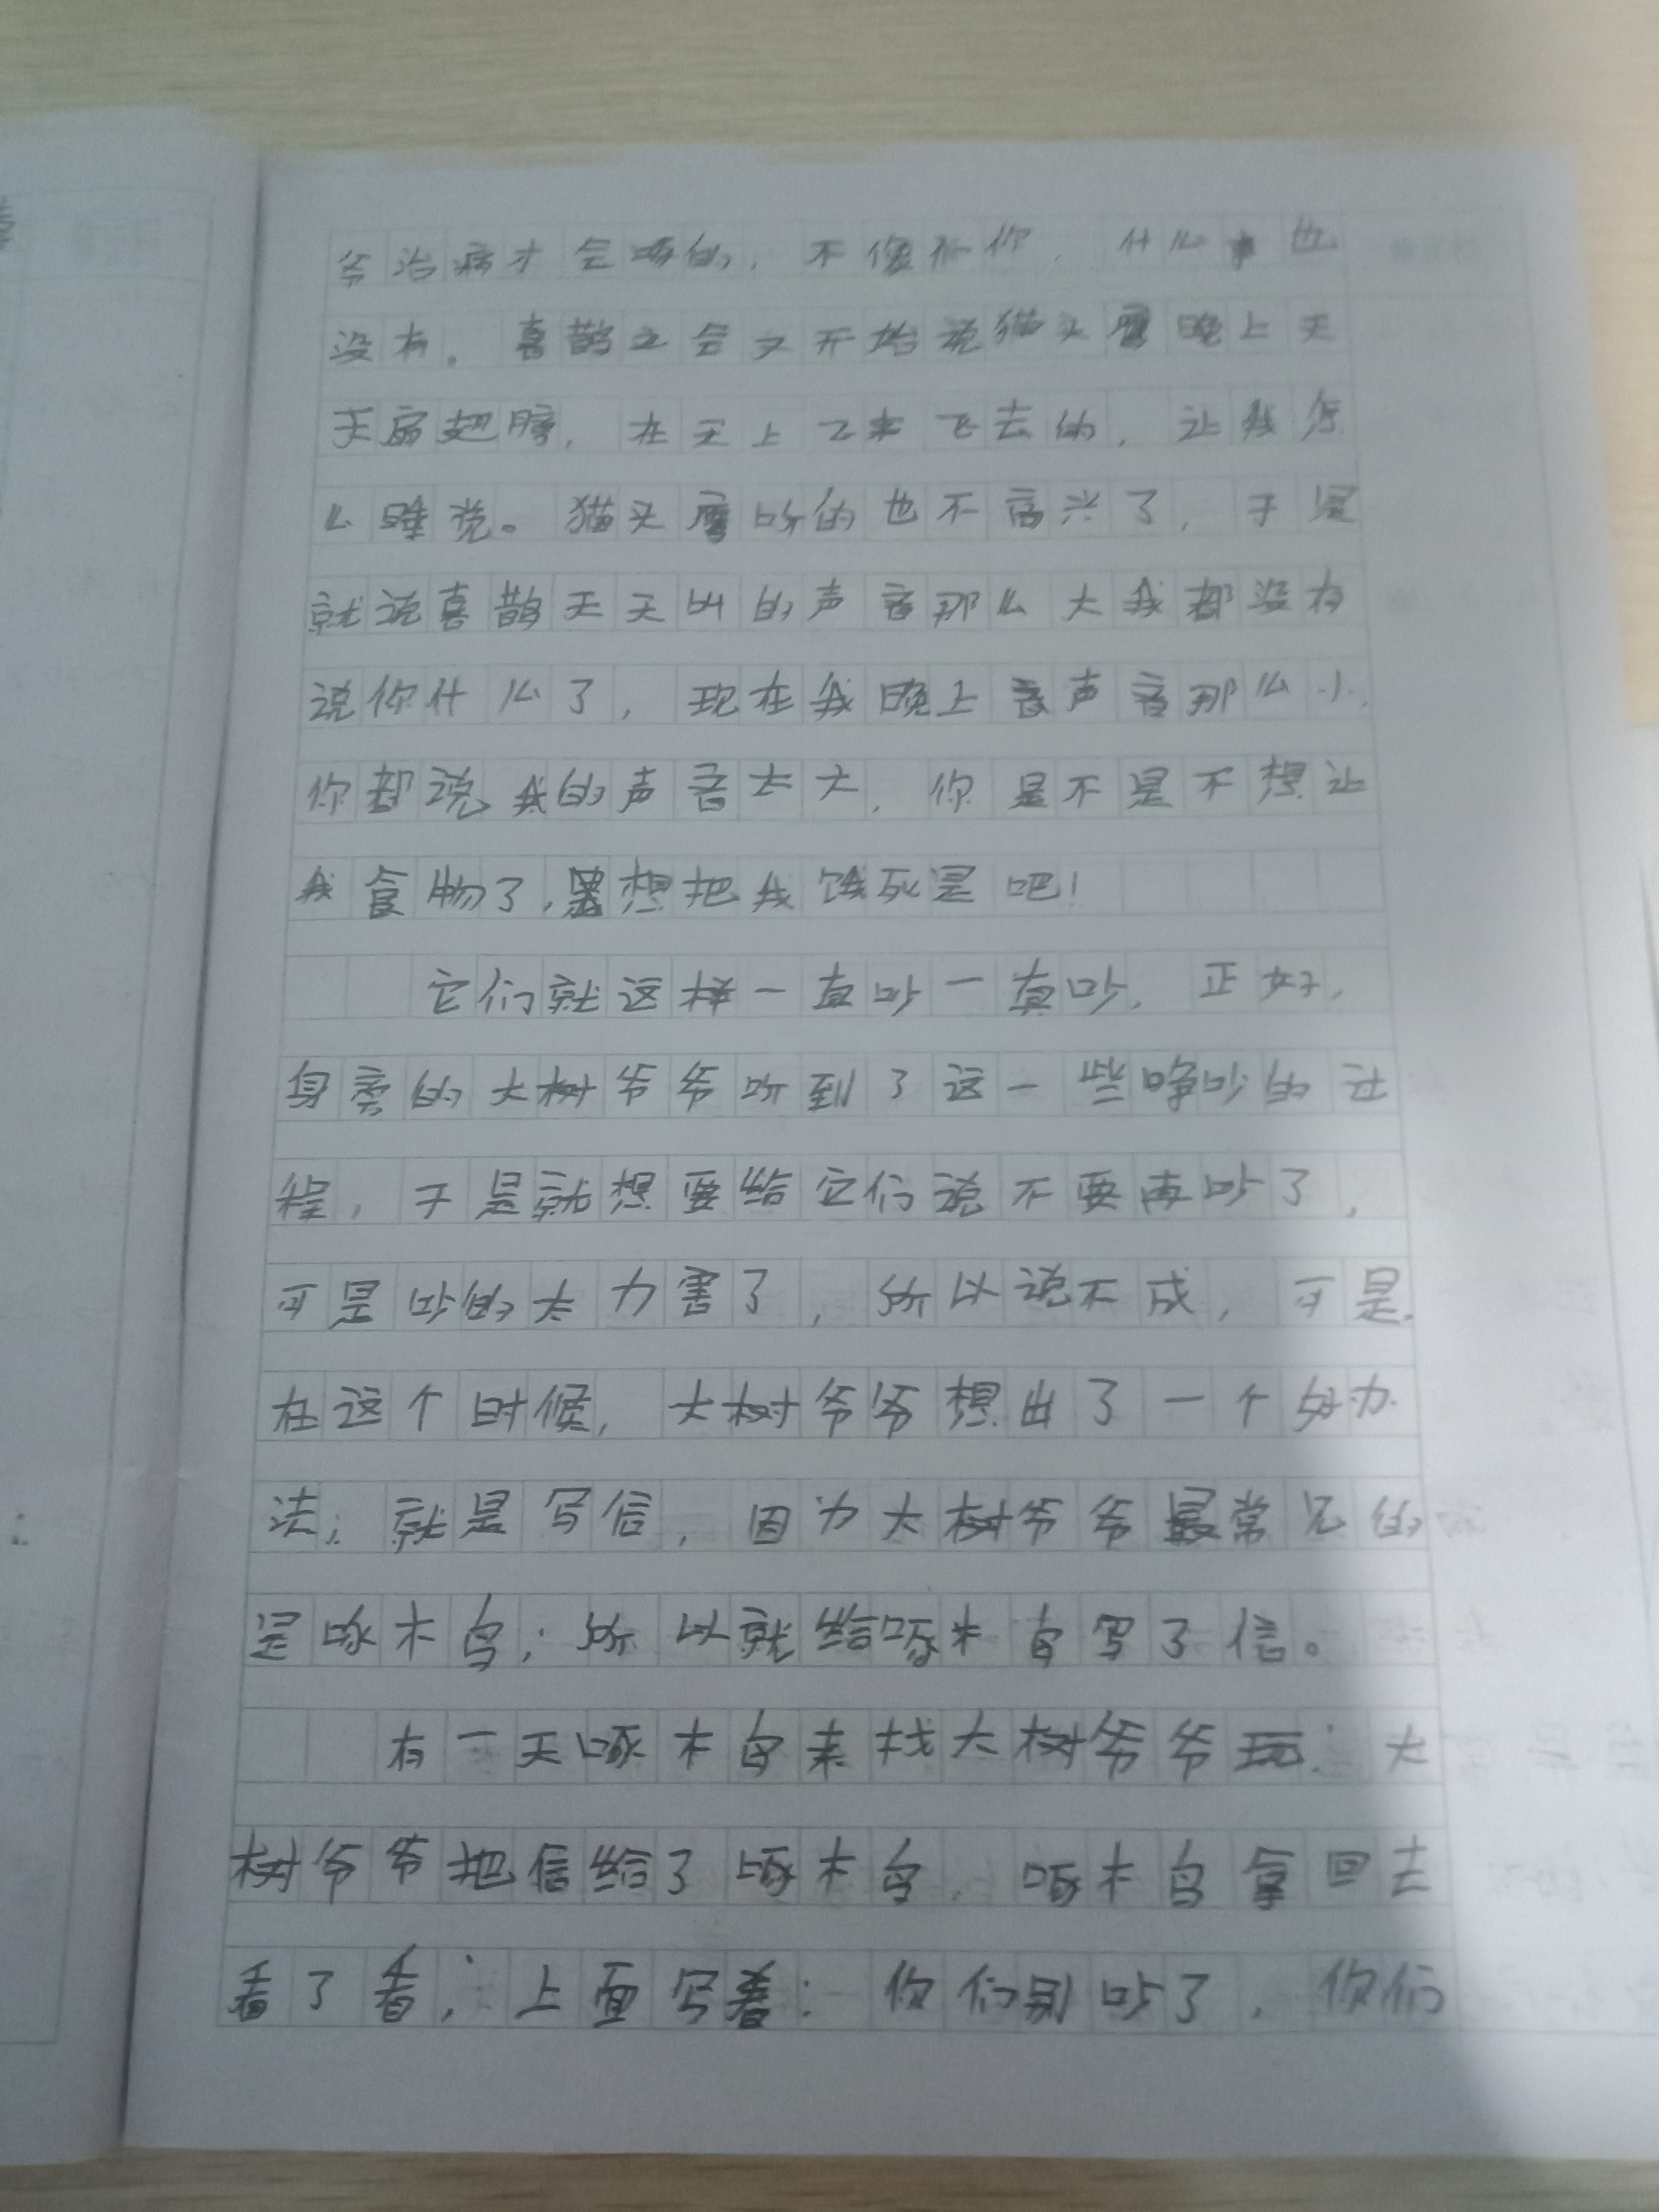 爷治病才会啄的，不像你，什么事也
没有。喜鹊之会又开始说猫头鹰晚上天
天扇翅膀，在天上飞来飞去的，让我怎
么睡觉。猫头鹰听的也不高兴了，于是
就说喜鹊天天叫的声音那么大我都没有
说你什么了，现在我晚上声音那么小，
你都说我的声音太大，你是不是不想让
我食物了，想把我饿死是吧！
它们就这样一直吵一直吵，正好，
身旁的大树爷爷听到了这一些争吵的过
程，于是就想要给它们说不要再吵了，
可是吵的太力害了，所以说不成，可是，
在这个时候，大树爷爷想出了一个好办
法；就是写信，因为大树爷爷最常见的
是啄木鸟；所以就给啄木鸟写了信。
有一天啄木鸟来找大树爷爷玩：大
树爷爷把信给了啄木鸟，啄木鸟拿回去
看了看，上面写着：你们别吵了，你们